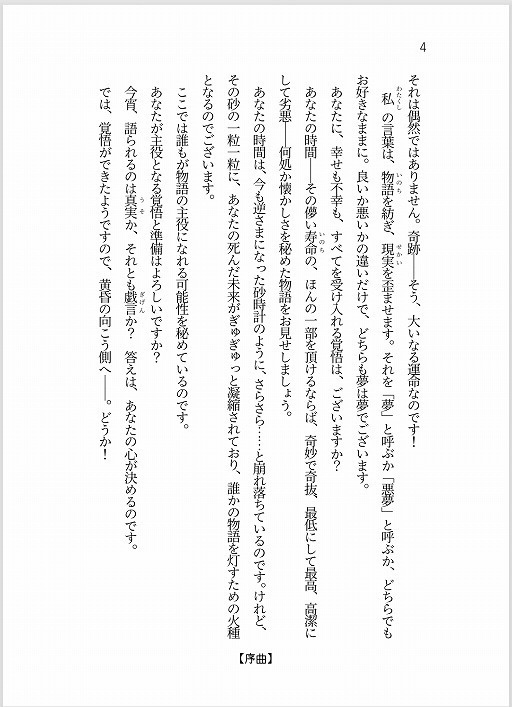 4
それは偶然ではありません。奇跡――そう、大いなる運命なのです！
私の言葉は、物語を紡ぎ、現実を歪ませます。それを「夢」と呼ぶか「悪夢」と呼ぶか、どちらでも
わたくし
いのち
せかい
お好きなままに。良いか悪いかの違いだけで、どちらも夢は夢でございます。
あなたに、幸せも不幸も、すべてを受け入れる覚悟は、ございますか？
あなたの時間――その儚い寿命の、ほんの一部を頂けるならば、奇妙で奇抜、最低にして最高、高潔に
いのち
して劣悪――何処か懐かしさを秘めた物語をお見せしましょう。
あなたの時間は、今も逆さまになった砂時計のように、さらさら……と崩れ落ちているのです。けれど、
その砂の一粒一粒に、あなたの死んだ未来がぎゅぎゅっと凝縮されており、誰かの物語を灯すための火種
となるのでございます。
ここでは誰もが物語の主役になれる可能性を秘めているのです。
あなたが主役となる覚悟と準備はよろしいですか？
今宵、語られるのは真実か、それとも戯言か？　答えは、あなたの心が決めるのです。
うそ
ぎげん
では、覚悟ができたようですので、黄昏の向こう側へ――。どうか！
【序曲】